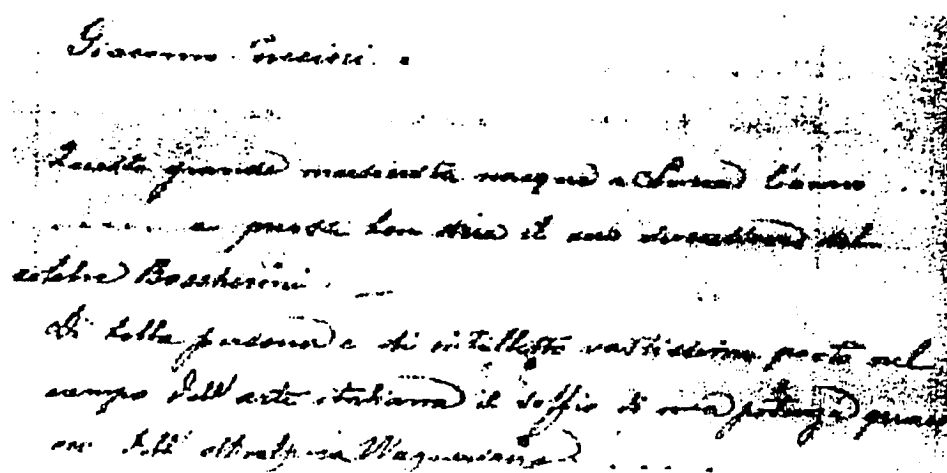 Giacomo Puccini.
Questo grande musicista nacque a Lucca l'anno ...
..... e può ben dirsi il discendente del
celebre Boccherini.
Di bella persona e di intelletto vastissimo portò nel
campo dell'arte italiana il soffio di una potenza quasi
dell'oltralpina Wagneriana ......